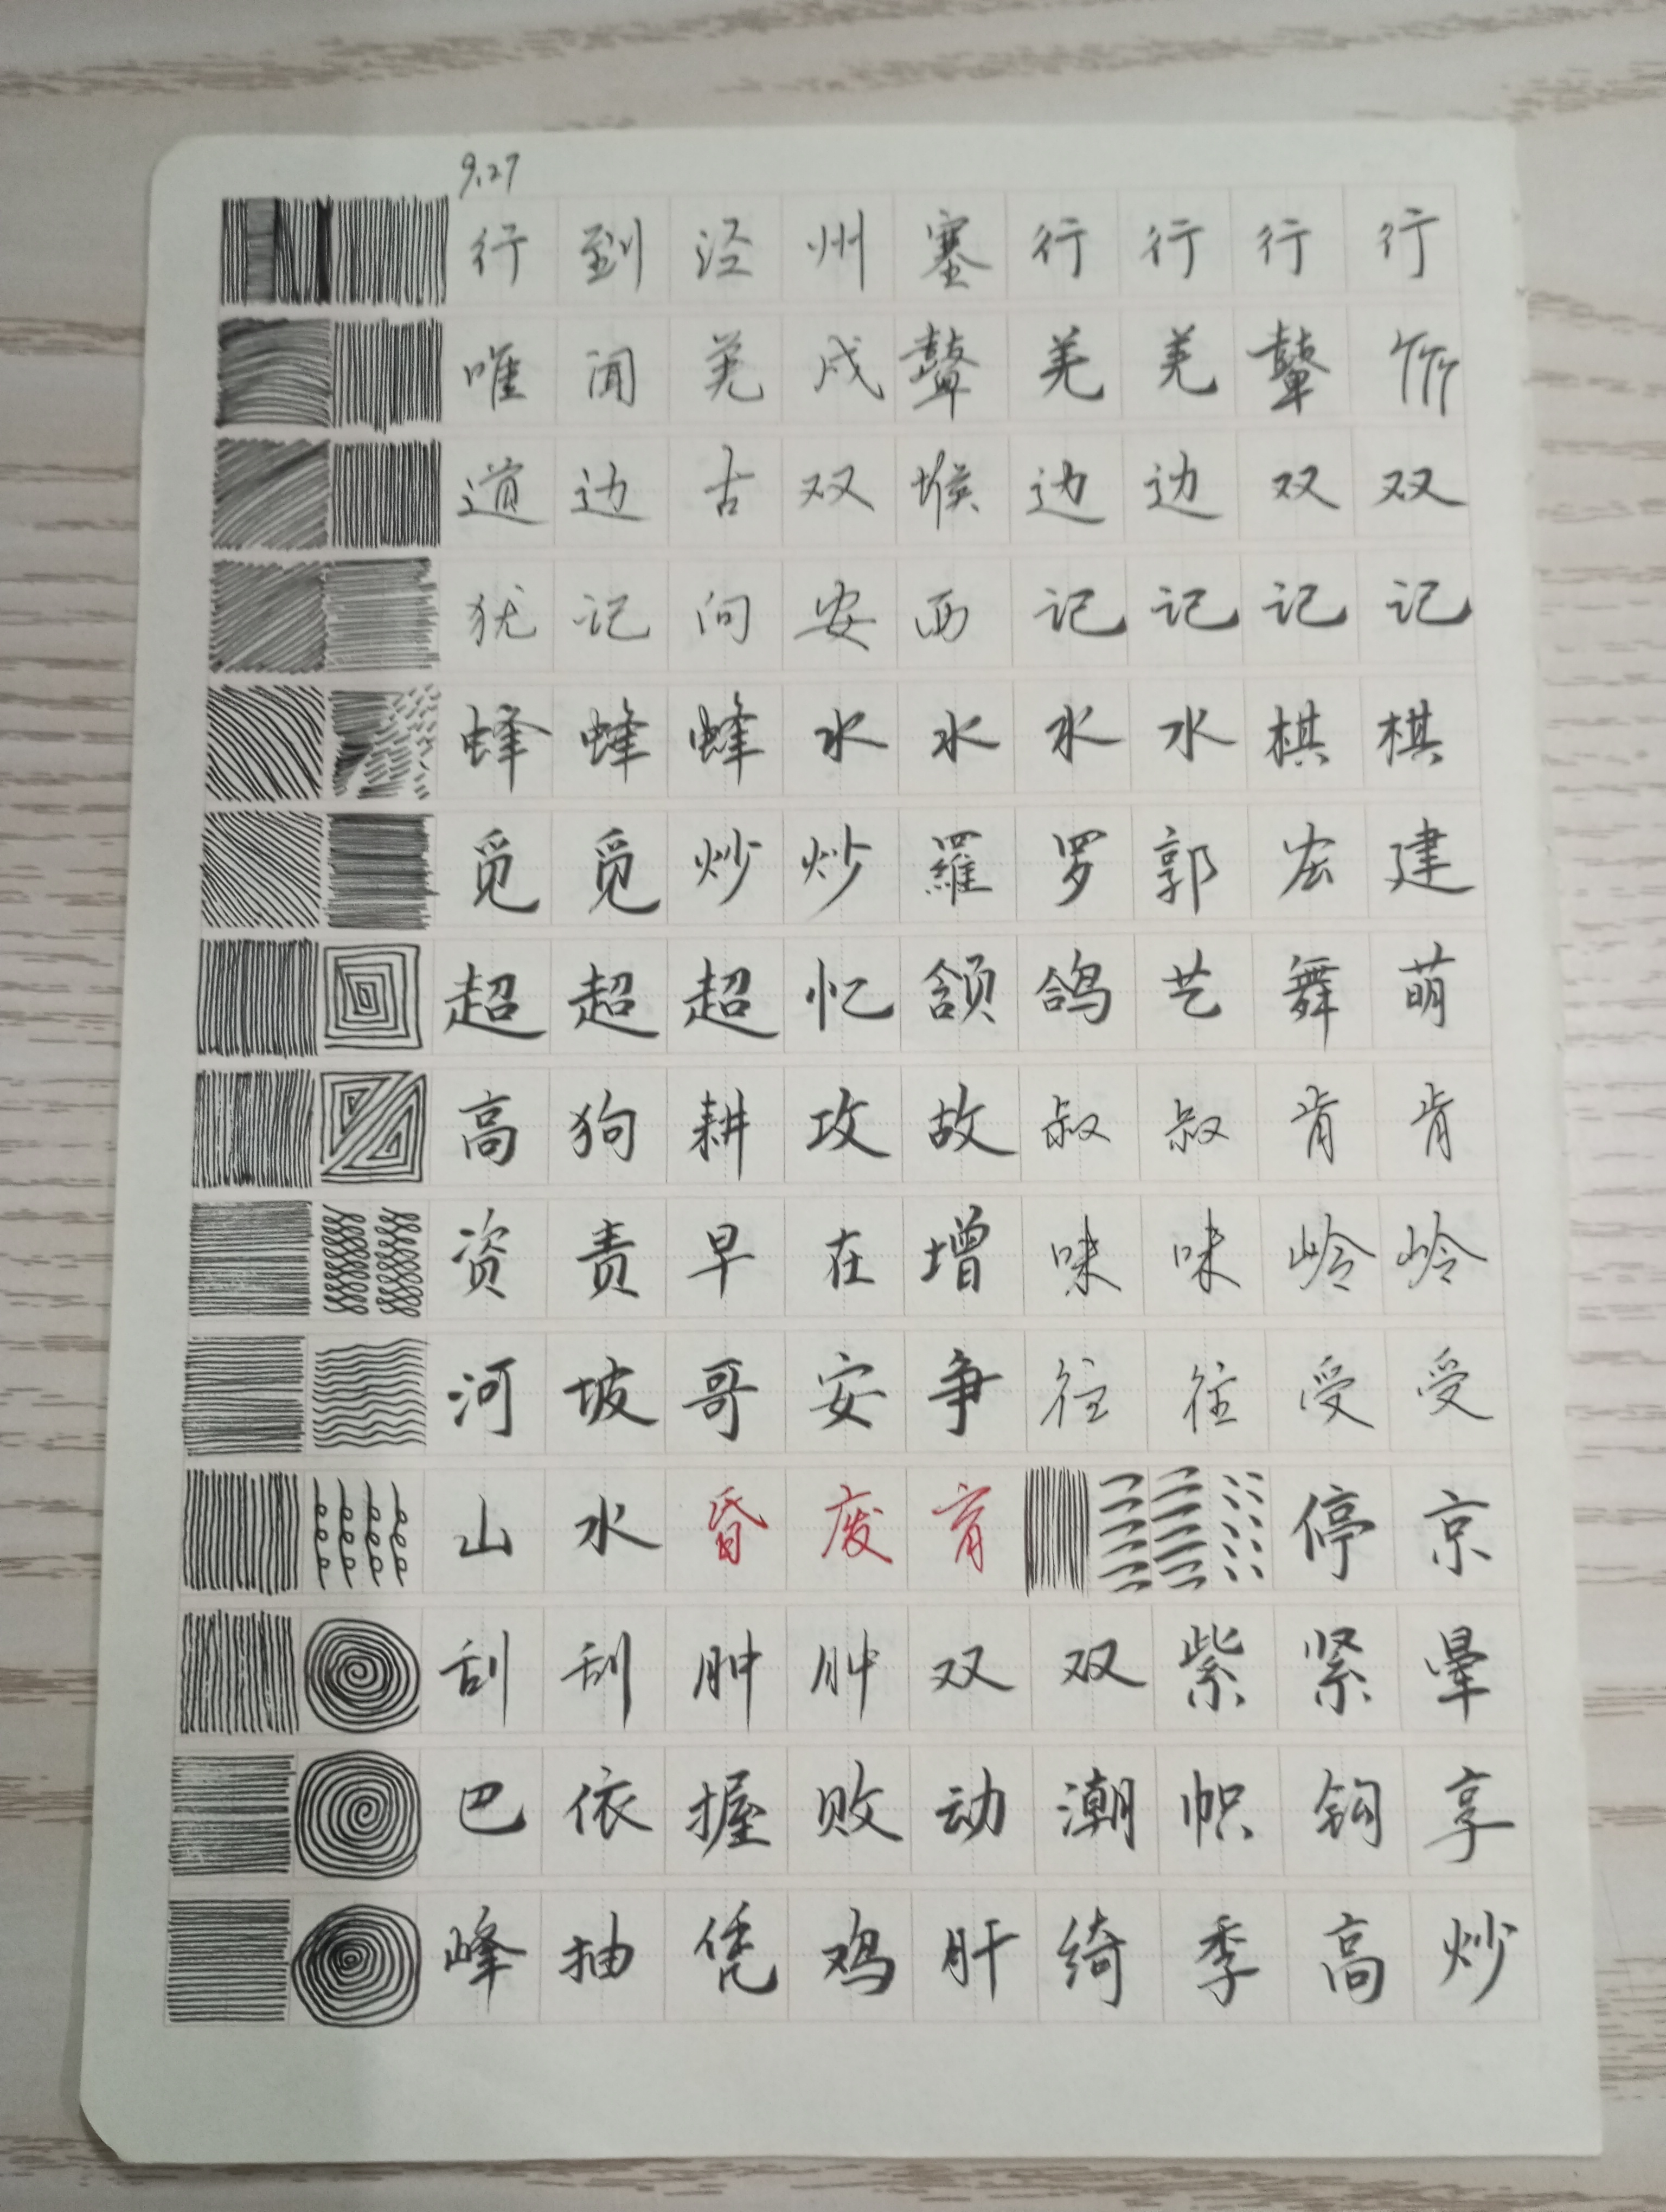 9.27
行到泾州塞行行行行
唯闻羌戍鼙羌羌鼙
道边古双堠边边双双
犹记向安西记记记记
蜂蜂蜂水水水水棋棋
觅觅炒炒羅罗郭宏建
超超超忆颔鸽艺舞萌
高狗耕攻故叔叔肯肯
资责早在增味味岭岭
河坡哥安争往往受受
山水昏废育停京
刮刮肿肿双双紫紧晕
巴依握败动潮帜钩享
峰抽凭鸡肝绮季高炒